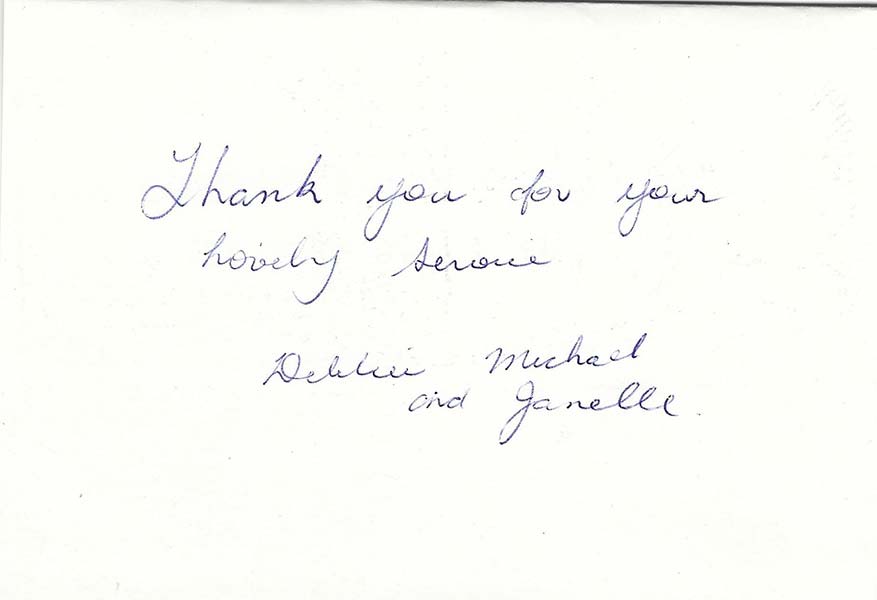 Thank you for your
lovely service
Debbie Michael
and Janelle.